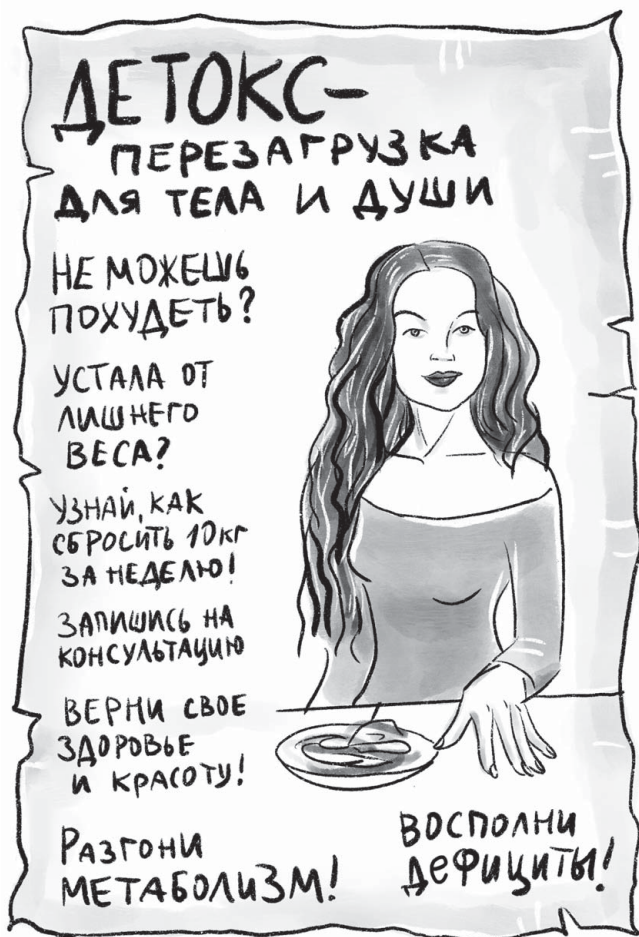 ДЕТОКС-
ПЕРЕЗАГРУЗКА
ДЛЯ ТЕЛА И ДУШИ
НЕ МОЖЕШЬ
ПОХУДЕТЬ?
УСТАЛА ОТ
ЛИШНЕГО
ВЕСА?
УЗНАЙ, КАК
СБРОСИТЬ 10КГ
ЗА НЕДЕЛЮ!
ЗАПИШИСЬ НА
КОНСУЛЬТАЦИЮ
ВЕРНИ СВОЕ
ЗДОРОВЬЕ
И КРАСОТУ!
РАЗГОНИ
МЕТАБОЛИЗМ!
ВОСПОЛНИ
ДЕФИЦИТЫ!